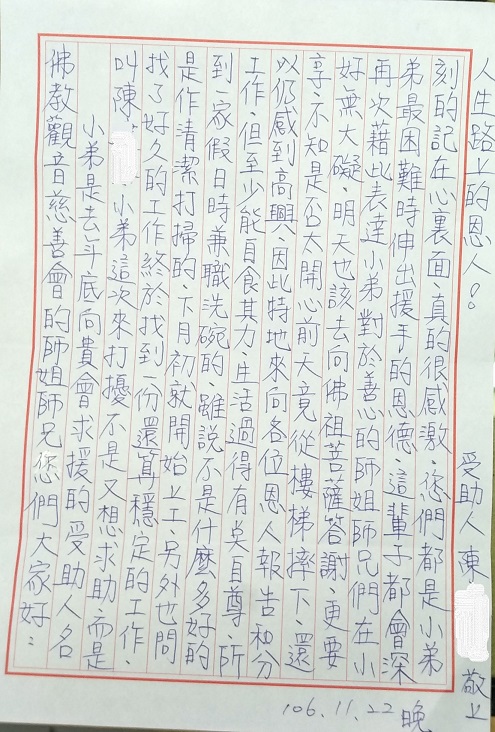 佛教觀音慈善會的師姐師兄您們大家好：
小弟是去年底向貴會求援的受助人名
叫陳 小弟這次來打擾不是又想求助、而是
找了好久的工作終於找到一份還算穩定的工作、
是作清潔打掃的、下月初就開始上工、另外也問
到一家假日時兼職洗碗的、雖說不是什麼多好的
工作、但至少能自食其力、生活過得有尖自尊、所
以仍感到高興、因此特地來向各位恩人報告和分
享、不知是否太開心前天竟從樓梯摔下、還
好無大礙、明天也該去向佛祖菩薩答謝、更要
再次藉此表達小弟對於善心的師姐師兄們在小
弟最困難時伸出援手的恩德、這輩子都會深
刻的記在心裏面、真的很感激、您們都是小弟
人生路上的恩人！
受助人 陳 敬上
106.11.22 晚